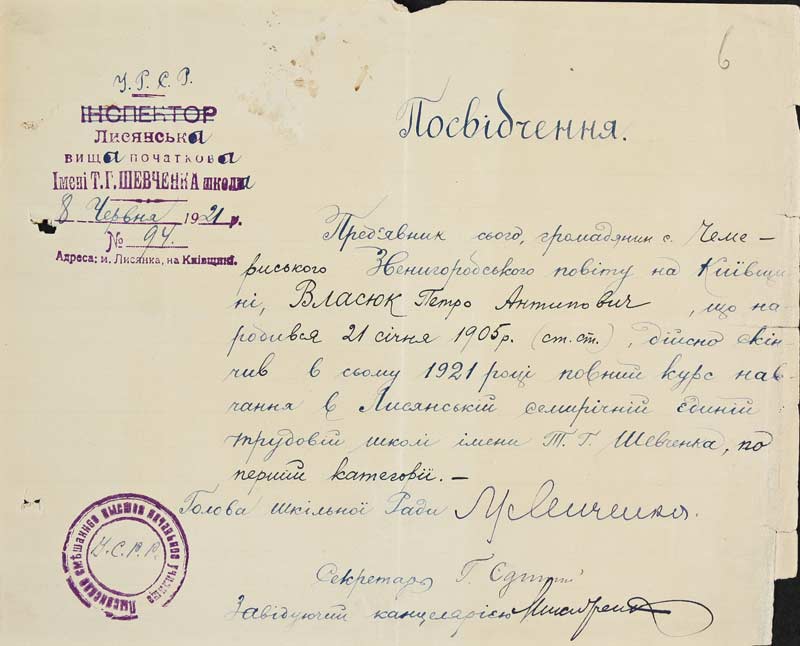 6
У. Р. С. Р.
ІНСПЕКТОР
Лисянська
вища початкова
Імені Т. Г. ШЕВЧЕНКА школа
8 Червня 1921 р.
№ 94.
Адреса: м. Лисянка, на Київщині.
Посвідчення.
Пред'явник сього, громадянин с. Чеме-
риського Звенигородського повіту на Київщи-
ні, Власюк Петро Антипович, що на-
родився 21 січня 1905 р. (ст. ст.), дійсно скін-
чив в сьому 1921 році повний курс нав-
чання в Лисянській семирічній єдиній
трудовій школі імени Т. Г. Шевченка, по
першій категорії. —
Голова шкільної Ради
Секретарь Г.
Завідуючий канцелярією
Лысянское смѣшанное высшее начальное училище
У. С. Р. Р.